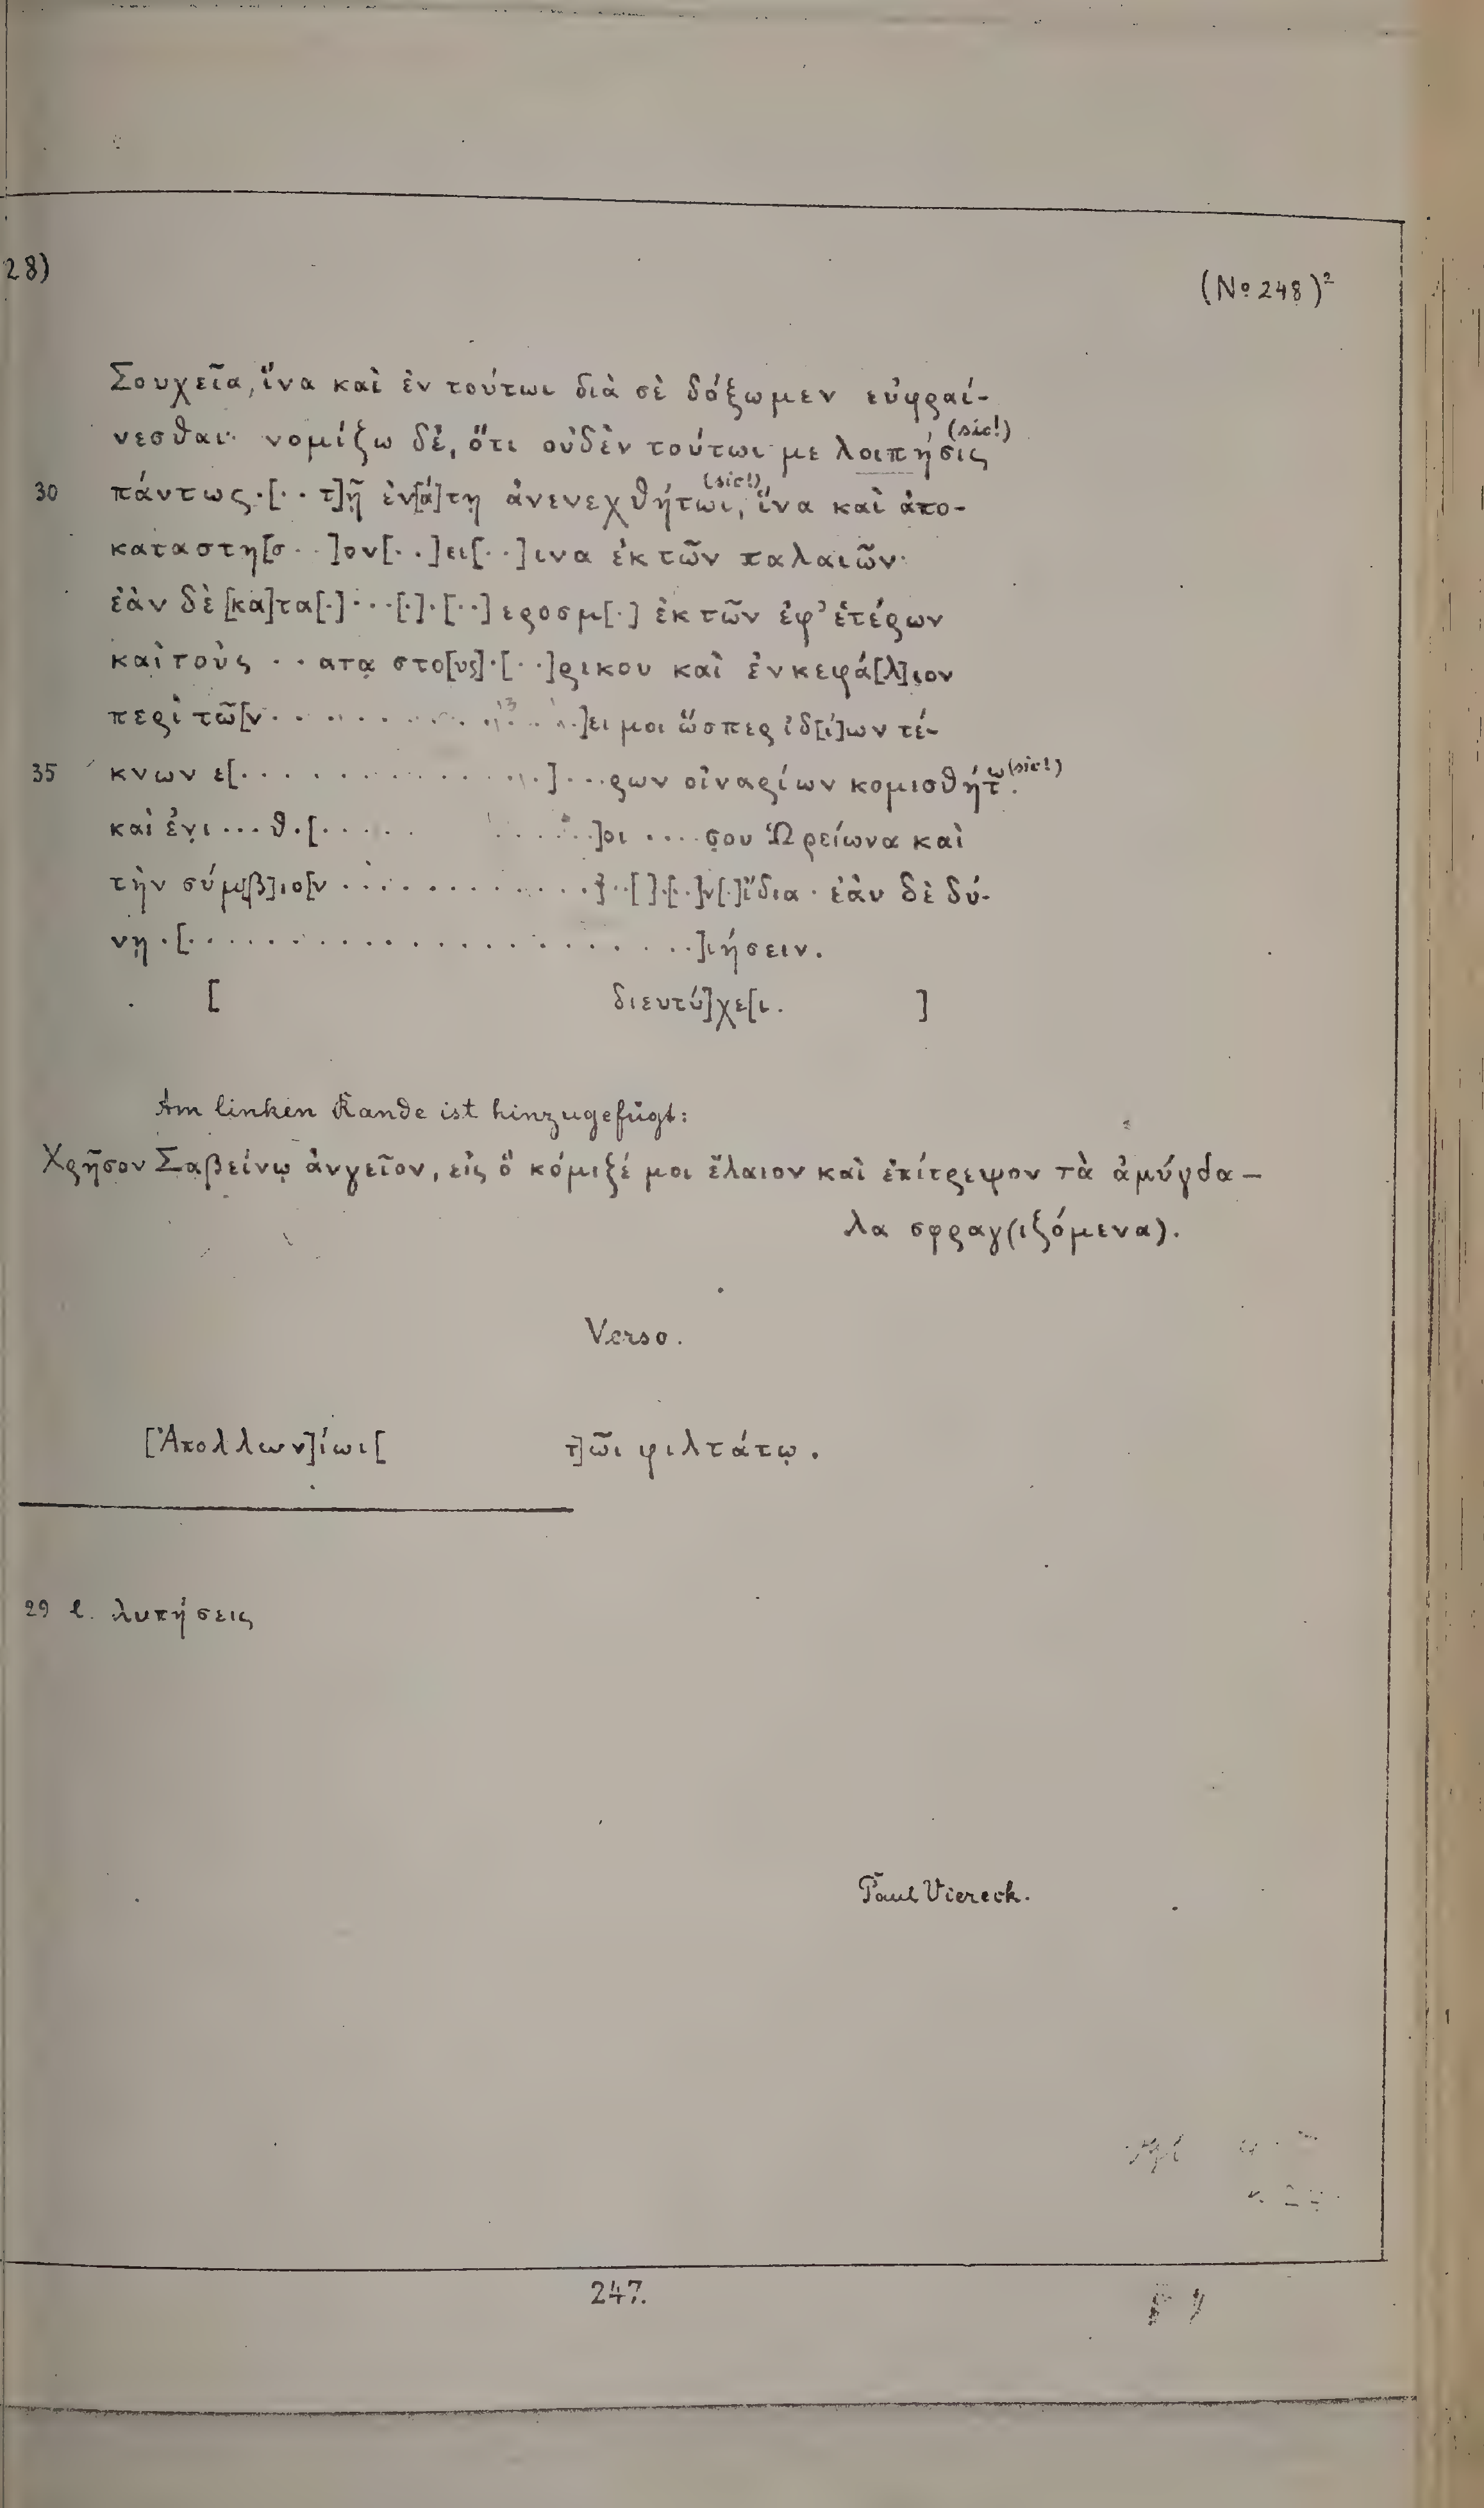 28)
(No 248)²
Σουχεῖα, ἵνα καὶ ἐν τούτωι διὰ σὲ δόξωμεν εὐφραί-
νεσθαι· νομίζω δέ, ὅτι οὐδὲν τούτωι με λοιπήσις (sic!)
30 πάντως·[· · τ]ῇ ἐν[ά]τῃ ἀνενεχθήτωι (sic!), ἵνα καὶ ἀπο-
καταστη[σ · ·]ον[· ·]ει[· ·]ινα ἐκ τῶν παλαιῶν·
ἐὰν δὲ [κα]τα[·]· · ·[·]·[· ·]εροσμ[·] ἐκ τῶν ἐφ' ἑτέρων
καὶ τοὺς · · ατα στο[υς]·[· ·]ρικου καὶ ἐνκεφά[λ]ιον
περὶ τῶ[ν · · · · · · · · · · · · ·]ει μοι ὥσπερ ἰδ[ί]ων τέ-
35 κνων ε[· · · · · · · · · · · · · ·]· · ·ρων οἰναρίων κομισθήτω (sic!).
καὶ ἐνι · · · θ·[· · · · · · · · · ·]οι · · · · σου Ὡρείωνα καὶ
τὴν σύμ[β]ιο[ν · · · · · · · · · · · ·]· ·[ ]·[· ·]ν[·]ἴδια · ἐὰν δὲ δύ-
νῃ ·[· · · · · · · · · · · · · · · · · · · · · ·]ιήσειν.
[ διευτύ]χε[ι. ]
Am linken Rande ist hinzugefügt:
Χρῆσον Σαβείνῳ ἀνγεῖον, εἰς ὃ κόμιξέ μοι ἔλαιον καὶ ἐπίτρεψον τὰ ἀμύγδα-
λα σφραγ(ιζόμενα).
Verso.
[Ἀπολλων]ίωι[ τ]ῶι φιλτάτῳ.
29 l. λυπήσεις
Paul Viereck.
247.